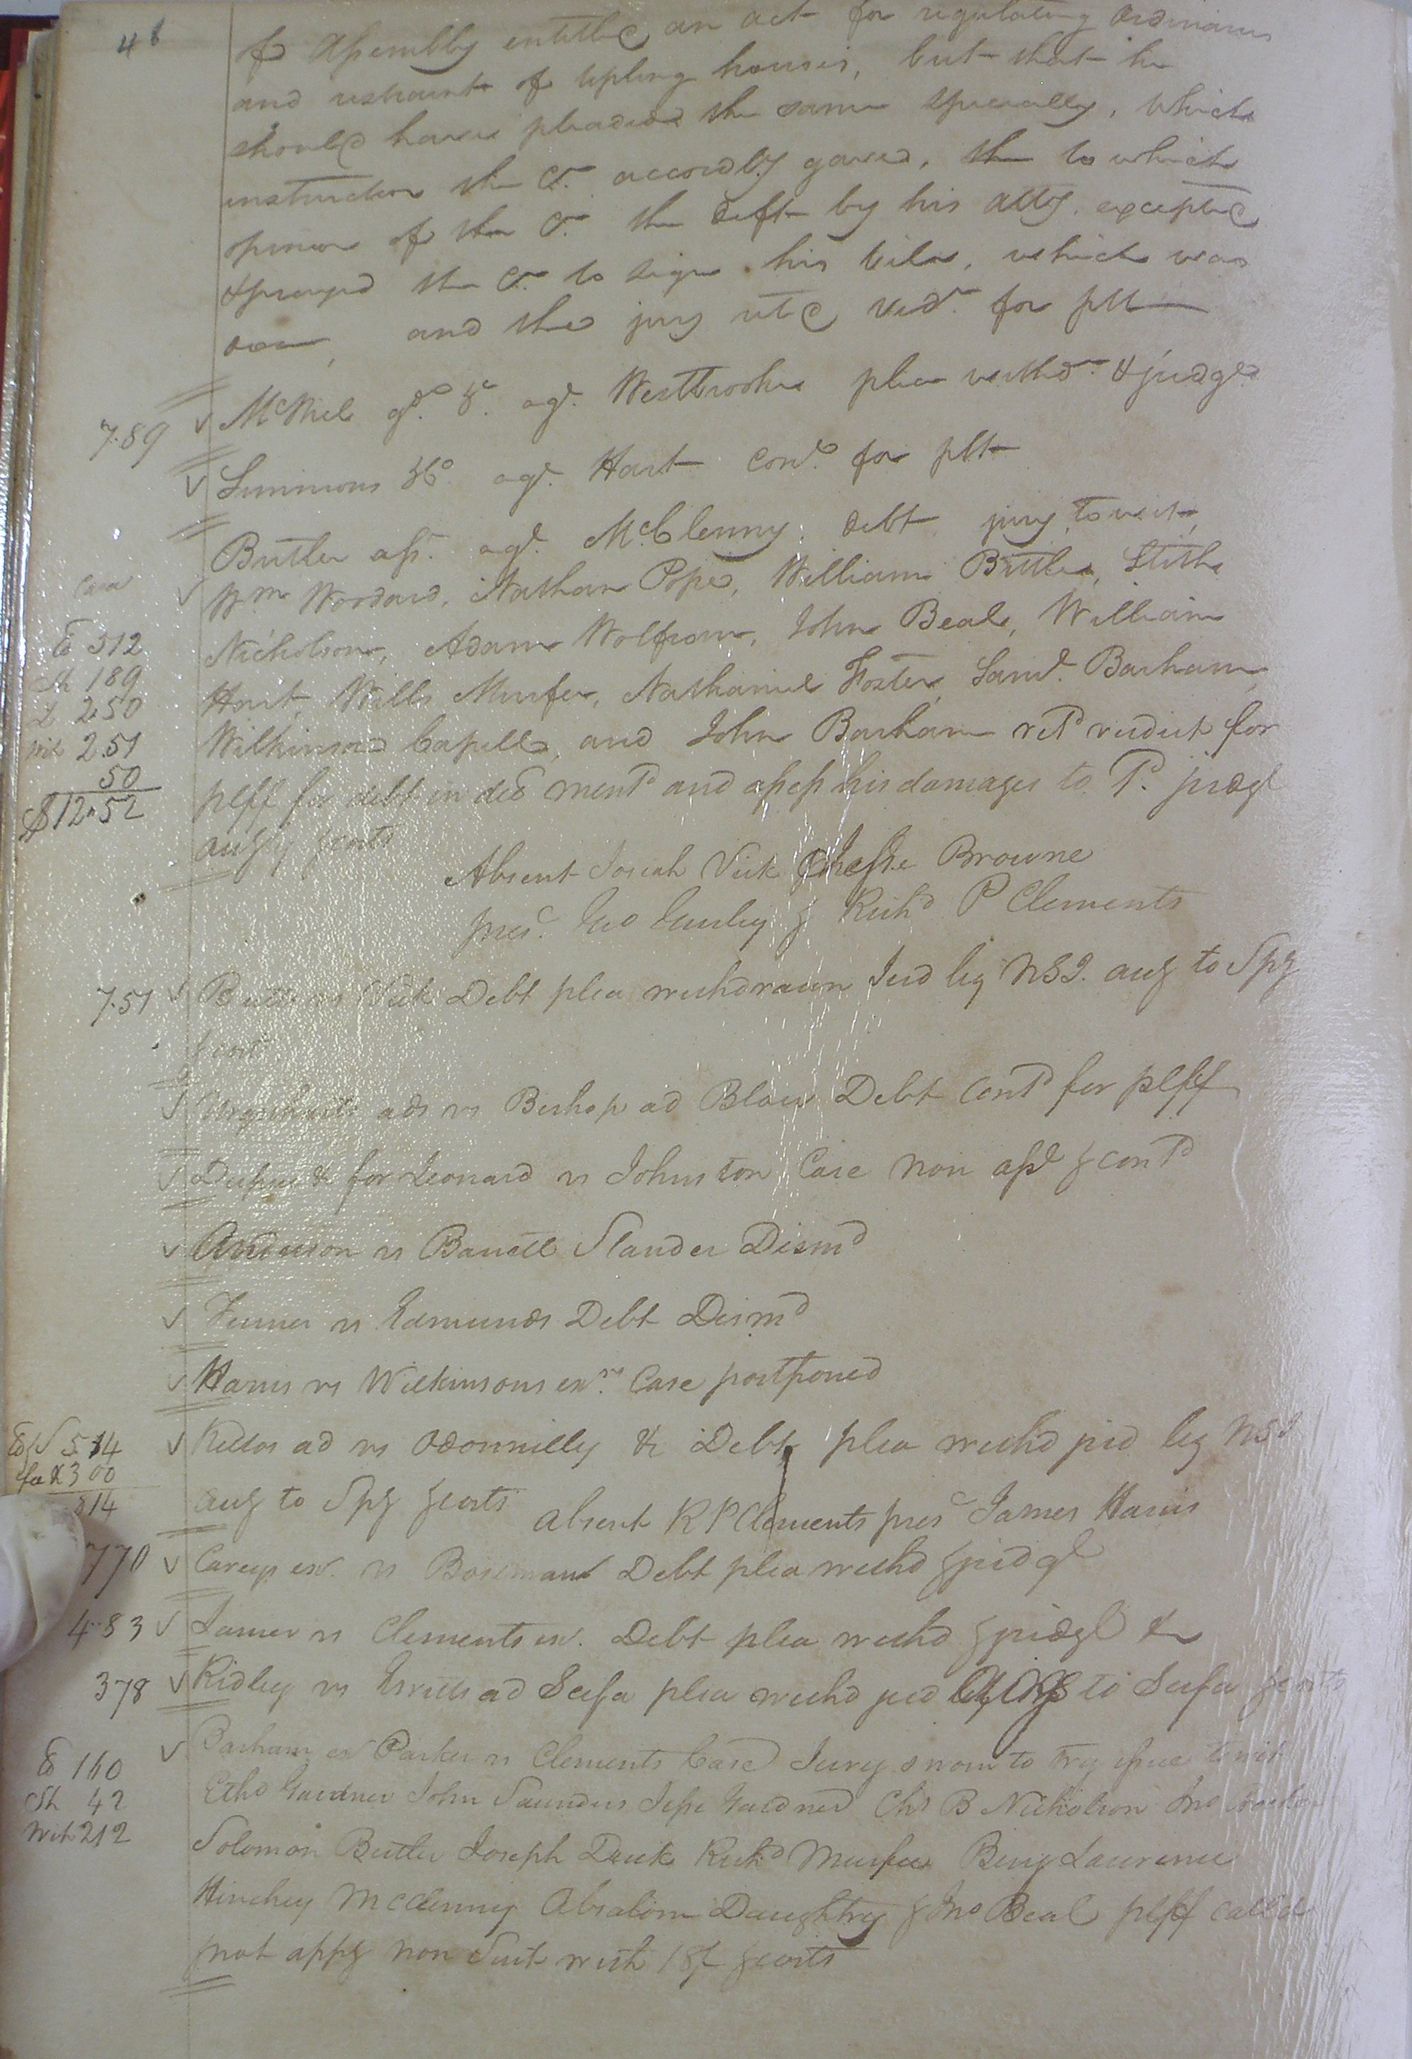 46
of Assembly entitled an act for regulating Ordinaries
and restraint of tipling houses, but that he
should have pleaded the same specially, which
instruction the Ct. accordly gave, the to which
opinion of the Ct. the deft by his atty. excepted
& prayed the Ct. to sign his bill, which was
done, and the jury retd verdt. for plt
7.89 McNiel agt. Westbrooke plea withdn. & judgt.
Simmons &Co. agt. Hart cond. for plt
Butler ass. agt. McClenny, debt jury, to wit,
Casa
Wm Woodard, Nathan Pope, William Britle, Stith
Cl 312
Nicholson, Adam Wolfram, John Beal, William
Sh 189
Hart, Wills Murfee, Nathaniel Foster, Saml. Barham,
L 2.50
Wilkinson Capell, and John Barham retd verdict for
Wit 2.51
50
plff for debt in decl mentd and assess his damages to 1d. judgt
$12.52
accy & costs
Absent Josiah Vick & Jesse Browne
prest. Jno Gurley & Richd P Clements
7.51 Butler vs Vick Debt plea withdrawn Jud by NSI. accg to Spy
& cost
Urquharts ads vs Bishop ad Blow Debt contd for plff
& for Leonard vs Johnston Case non asst & contd
Anderson vs Barrett Slander Dismd
Turner vs Edmunds Debt Dismd
Harris vs Wilkinsons exrs. Case postponed
5.14 ad vs Odonnelly &c Debt plea withd jud by NSI
300
814
accg to Spy & costs Absent R P Clements prest James Harris
770 Careys exr. vs Bozeman Debt plea withd & judgt
4.83 Lanier vs Clements exr. Debt plea withd & judgt &c
378 Ridley vs ad Scifa plea withd jud accg to Scifa & costs
Barham ex Parker vs Clements Case Jury sworn to try issue to wit
Cl 160
Ethd Gardner John Saunders Jesse Gardner Chs B Nicholson Jno
Sh 42
Wit 212
Solomon Butler Joseph Duck Richd Murfee Benj Lawrence
Hinchey McClenny Absalom Daughtry & Jno Beal plff called
& not appg non Suit with 18/ & costs